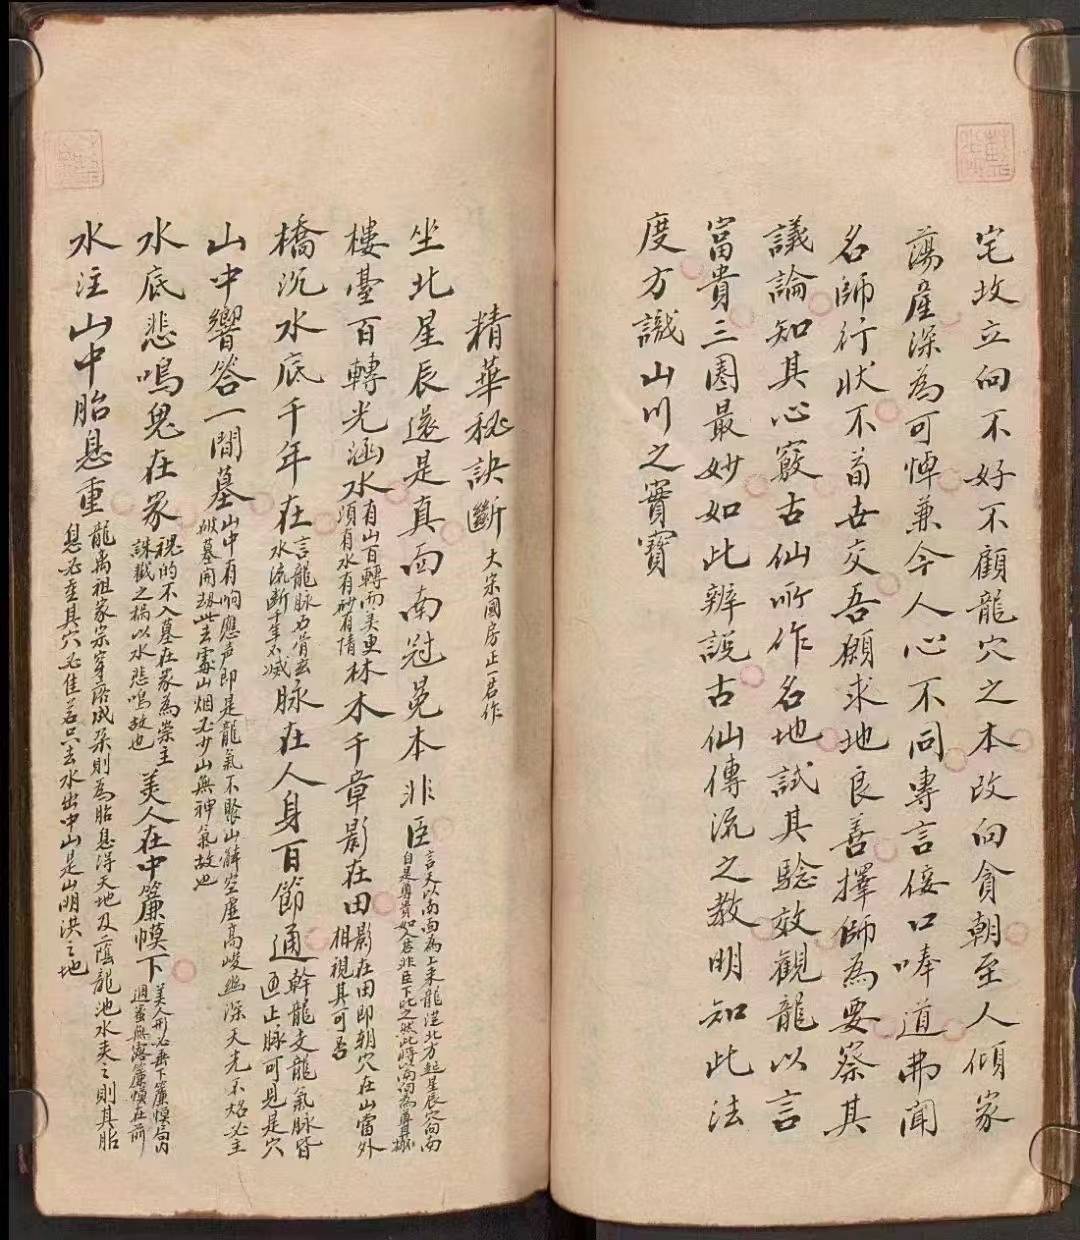 宅坟立向不好不顧龍穴之本改向貪朝至人傾家
蕩產深為可悼兼今人心不同專言佞口唪道弗聞
名師行狀不苟世交吾願求地良善擇師為要察其
議論知其心竅古仙所作名地試其驗效觀龍以言
富貴三圈最妙如此辨說古仙傳流之教明知此法
度方識山川之實寶
精華秘訣斷 大宋國房正一君作
坐北星辰還是真面南冠冕本非臣 言天以南面為上来龍從北方起星辰穴向南
自是尊貴如人君非臣下比之然此将以南向為尊貴
樓臺百轉光涵水 有山百轉而美更
須有水有砂有情 林木千章影在田 影在田即朝穴在山當外
相視其可否
橋沉水底千年在 言龍脉为骨玄
水流斷千年不减 脉在人身百節通 幹龍支龍氣脉皆
通止脉可見是穴
山中響答一間墓 山中有响應声即是龍氣不聚山解空虛高峻幽深天光不炤必主
被墓開劫此去處山烟必少山無神氣故也
水底悲鳴鬼在家 視的不入墓在家為祟主
誅戮之禍以水悲鳴故也 美人在中簾幙下 美人形必垂下簾幙局内
週蓋無落簾幙在前
水注山中胎息重 龍离祖家宗穿落成朶則為胎息得天地及蔭龍池水夹之則其胎
息必重其穴必佳若只去水出中山是山明洪之地